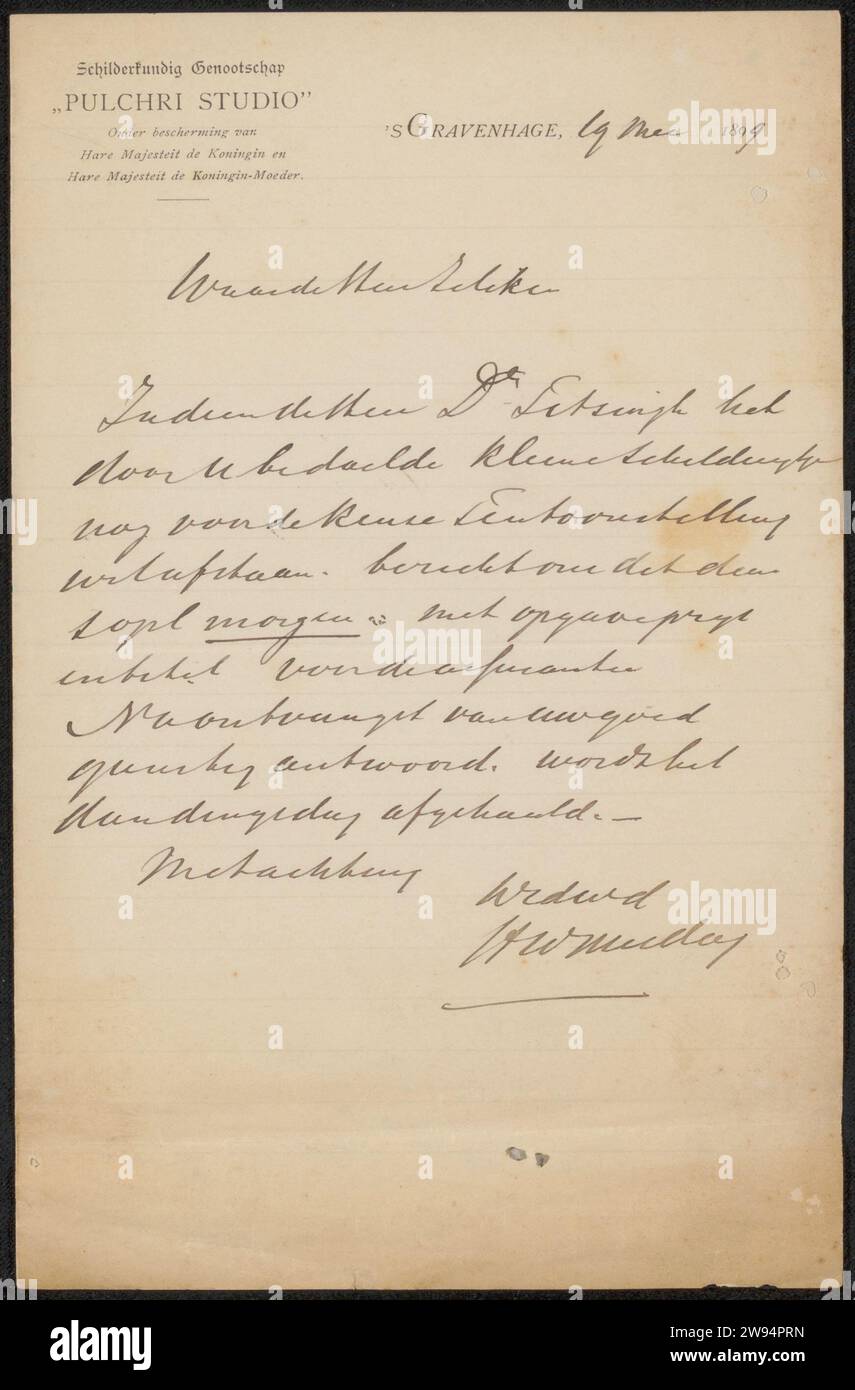 Schilderkundig Genootschap
„PULCHRI STUDIO”
Onder bescherming van
Hare Majesteit de Koningin en
Hare Majesteit de Koningin-Moeder.
'S GRAVENHAGE, 19 Mei 1899
Waarde Heer Zilcken
Indien de Heer Dr Titsingh het
door U bedoelde kleine schilderijtje
nog voor de Keuse Tentoonstelling
wil afstaan. bericht ons dit dan
s.v.pl morgen. met opgave prijs
en titel voor de assurantie
Na ontvangst van uw goed
gunstig antwoord. wordt het
dan dingsdag afgehaald. —
Met achting
Uw dwd
HW Mesdag
alamy
a
Image ID: 2W94PRN
www.alamy.com